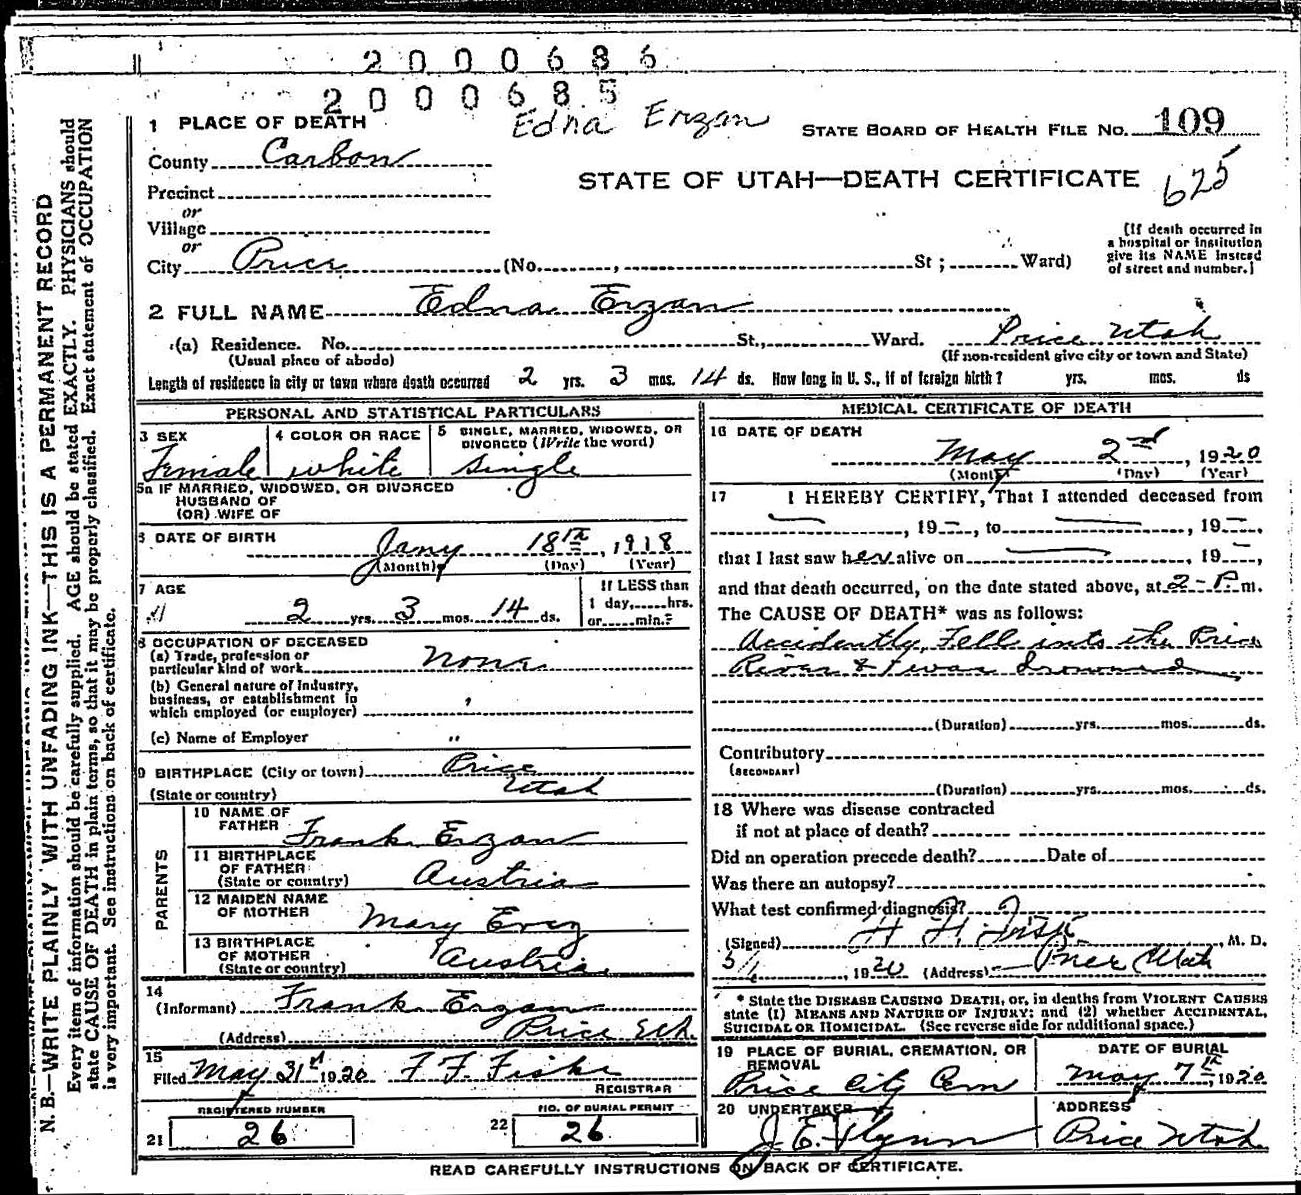 2000686
2000685
Edna Erzan
1 PLACE OF DEATH
STATE BOARD OF HEALTH FILE NO. 109
County Carbon
STATE OF UTAH—DEATH CERTIFICATE 625
Precinct
or
Village
or
City Price (No. , St ; Ward)
(If death occurred in a hospital or institution give its NAME instead of street and number.)
2 FULL NAME Edna Erzan
(a) Residence. No. St., Ward. Price Utah
(Usual place of abode) (If non-resident give city or town and State)
Length of residence in city or town where death occurred 2 yrs. 3 mos. 14 ds. How long in U. S., if of foreign birth? yrs. mos. ds
PERSONAL AND STATISTICAL PARTICULARS
3 SEX 4 COLOR OR RACE 5 SINGLE, MARRIED, WIDOWED, OR DIVORCED (Write the word)
Female white Single
5a IF MARRIED, WIDOWED, OR DIVORCED
HUSBAND OF
(OR) WIFE OF
6 DATE OF BIRTH
Jany 18th, 1918
(Month) (Day) (Year)
7 AGE If LESS than
2 yrs. 3 mos. 14 ds. 1 day,......hrs.
or......min.?
8 OCCUPATION OF DECEASED
(a) Trade, profession or
particular kind of work None
(b) General nature of Industry,
business, or establishment in
which employed (or employer)
(c) Name of Employer "
9 BIRTHPLACE (City or town) Price
(State or country) Utah
PARENTS
10 NAME OF
FATHER Frank Erzan
11 BIRTHPLACE
OF FATHER
(State or country) Austria
12 MAIDEN NAME
OF MOTHER Mary
13 BIRTHPLACE
OF MOTHER
(State or country) Austria
14
(Informant) Frank Erzan
(Address) Price
15
Filed May 31st 1920 F. F. Fisk
REGISTRAR
REGISTERED NUMBER
21 26
NO. OF BURIAL PERMIT
22 26
MEDICAL CERTIFICATE OF DEATH
16 DATE OF DEATH
May 2nd, 1920
(Month) (Day) (Year)
17 I HEREBY CERTIFY, That I attended deceased from
, 19 , to , 19 ,
that I last saw her alive on , 19 ,
and that death occurred, on the date stated above, at 2-P m.
The CAUSE OF DEATH* was as follows:
Accidently Fell into the Price
River & was Drowned
(Duration) yrs. mos. ds.
Contributory
(SECONDARY)
(Duration) yrs. mos. ds.
18 Where was disease contracted
if not at place of death?
Did an operation precede death? Date of
Was there an autopsy?
What test confirmed diagnosis?
(Signed) Fisk, M. D.
, 1920 (Address) Price Utah
* State the DISEASE CAUSING DEATH, or, in deaths from VIOLENT CAUSES
state (1) MEANS AND NATURE OF INJURY: and (2) whether ACCIDENTAL,
SUICIDAL OR HOMICIDAL. (See reverse side for additional space.)
19 PLACE OF BURIAL, CREMATION, OR REMOVAL
Price City Cem
DATE OF BURIAL
May 7th, 1920
20 UNDERTAKER
J. E. Flynn
ADDRESS
Price Utah
READ CAREFULLY INSTRUCTIONS ON BACK OF CERTIFICATE.
N. B.—WRITE PLAINLY WITH UNFADING INK—THIS IS A PERMANENT RECORD
Every item of information should be carefully supplied. AGE should be stated EXACTLY. PHYSICIANS should
state CAUSE OF DEATH in plain terms, so that it may be properly classified. Exact statement of OCCUPATION
is very important. See instructions on back of certificate.